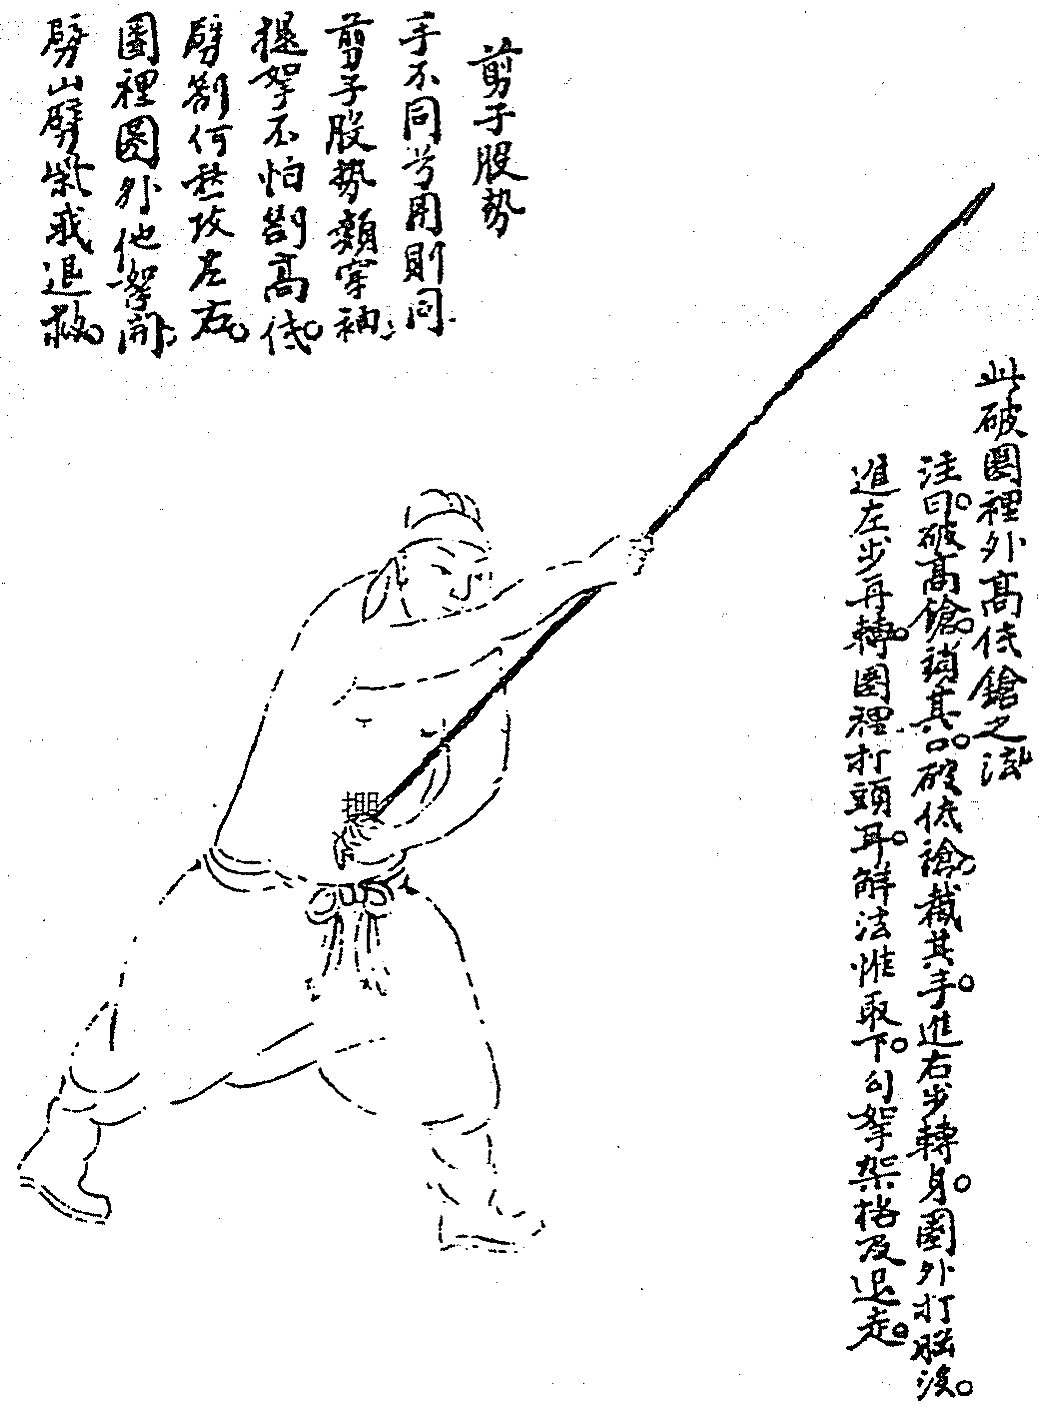 剪子股勢
手不同兮用則同
剪子股勢類穿袖
提拏不怕劄髙低
劈劄何愁攻左右
圈裡圈外他拏開
劈山劈柴或退救
此破圈裡外髙低鎗之法
注曰破髙鎗鎖其口破低鎗截其手進右步轉身圈外打腦後
進左步再轉圈裡打頭耳解法惟取下勾拏架格及退走